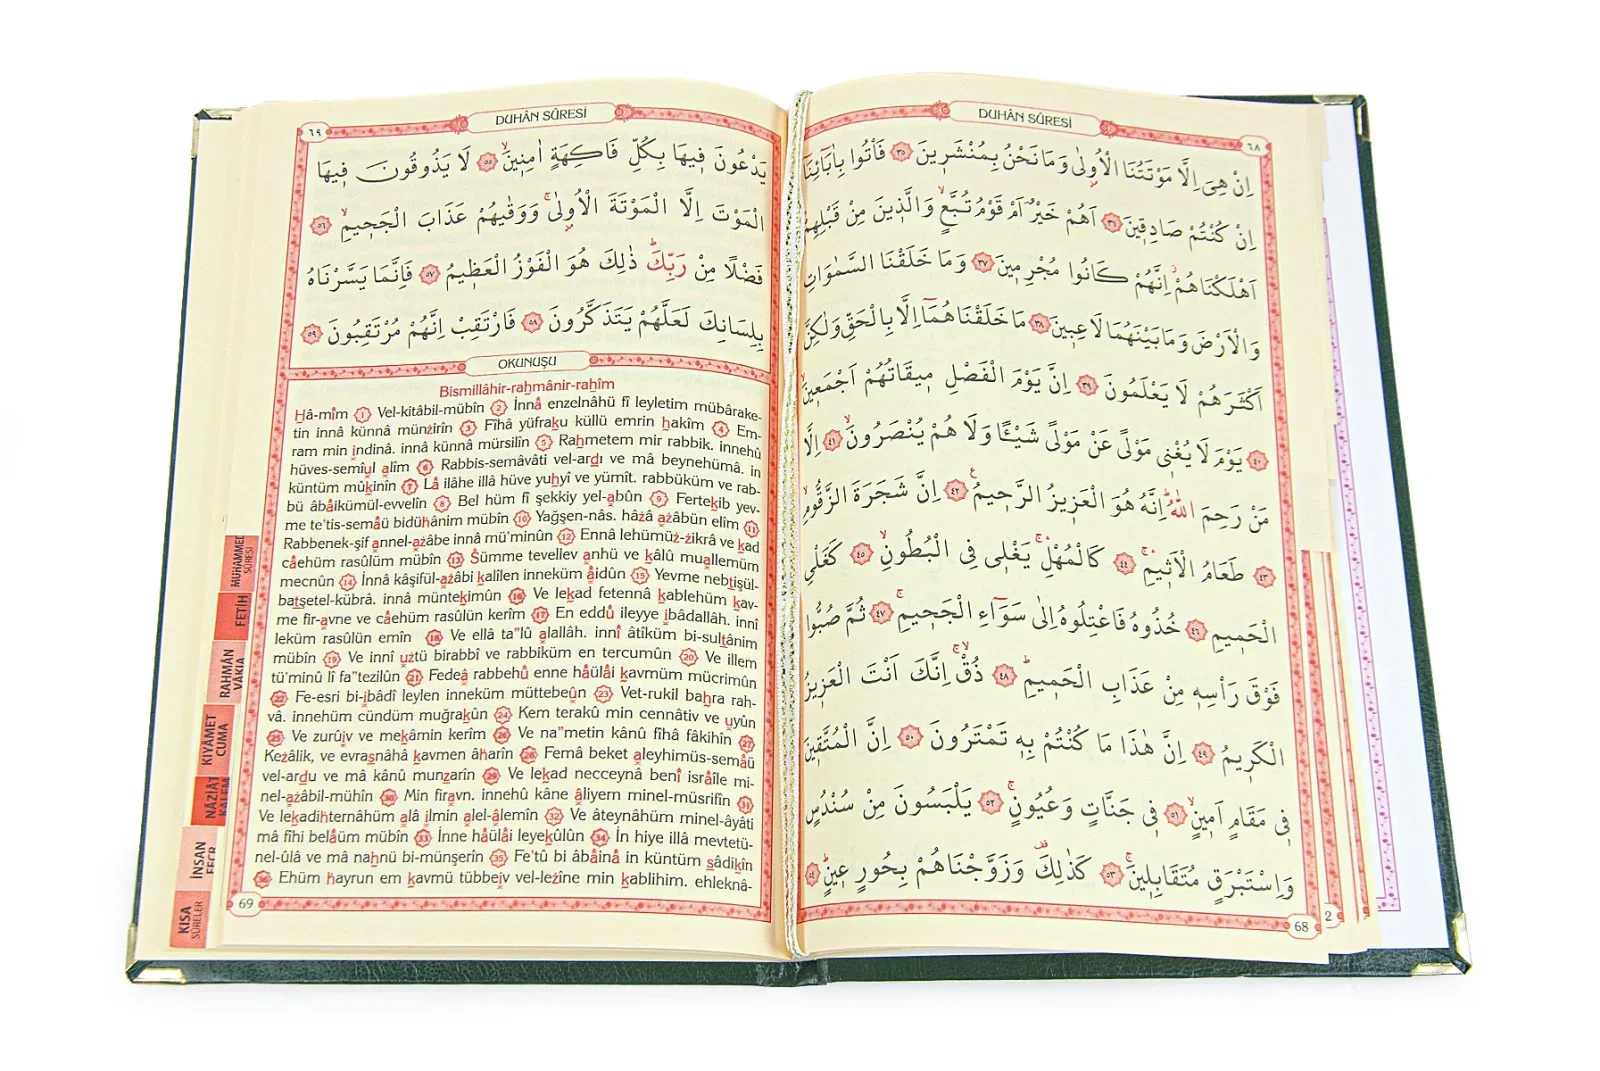 DUHÂN SÛRESİ
٦٨
اِنْ هِىَ اِلَّا مَوْتَتُنَا الْاُو۫لٰى وَمَا نَحْنُ بِمُنْشَر۪ينَ ٣٥ فَأْتُوا بِاٰبَٓائِنَٓا
اِنْ كُنْتُمْ صَادِق۪ينَ ٣٦ اَهُمْ خَيْرٌ اَمْ قَوْمُ تُبَّعٍۙ وَالَّذ۪ينَ مِنْ قَبْلِهِمْ
اَهْلَكْنَاهُمْۘ اِنَّهُمْ كَانُوا مُجْرِم۪ينَ ٣٧ وَمَا خَلَقْنَا السَّمٰوَاتِ
وَالْاَرْضَ وَمَا بَيْنَهُمَا لَاعِب۪ينَ ٣٨ مَا خَلَقْنَاهُمَٓا اِلَّا بِالْحَقِّ وَلٰكِنَّ
اَكْثَرَهُمْ لَا يَعْلَمُونَ ٣٩ اِنَّ يَوْمَ الْفَصْلِ م۪يقَاتُهُمْ اَجْمَع۪ينَ
٤٠ يَوْمَ لَا يُغْن۪ى مَوْلًى عَنْ مَوْلًى شَيْـًٔا وَلَا هُمْ يُنْصَرُونَۙ ٤١ اِلَّا
مَنْ رَحِمَ اللّٰهُۜ اِنَّهُ هُوَ الْعَز۪يزُ الرَّح۪يمُ ٤٢ اِنَّ شَجَرَةَ الزَّقُّومِۙ
٤٣ طَعَامُ الْاَث۪يمِۚ ٤٤ كَالْمُهْلِۚ يَغْل۪ى فِى الْبُطُونِۙ ٤٥ كَغَلْىِ
الْحَم۪يمِ ٤٦ خُذُوهُ فَاعْتِلُوهُ اِلٰى سَوَٓاءِ الْجَح۪يمِۚ ٤٧ ثُمَّ صُبُّوا
فَوْقَ رَأْسِه۪ مِنْ عَذَابِ الْحَم۪يمِۜ ٤٨ ذُقْۙ اِنَّكَ اَنْتَ الْعَز۪يزُ
الْكَر۪يمُ ٤٩ اِنَّ هٰذَا مَا كُنْتُمْ بِه۪ تَمْتَرُونَ ٥٠ اِنَّ الْمُتَّق۪ينَ
ف۪ى مَقَامٍ اَم۪ينٍۙ ٥١ ف۪ى جَنَّاتٍ وَعُيُونٍۚ ٥٢ يَلْبَسُونَ مِنْ سُنْدُسٍ
وَاِسْتَبْرَقٍ مُتَقَابِل۪ينَۚ ٥٣ كَذٰلِكَ۠ وَزَوَّجْنَاهُمْ بِحُورٍ ع۪ينٍۜ ٥٤
68
2
DUHÂN SÛRESİ
٦٩
يَدْعُونَ ف۪يهَا بِكُلِّ فَاكِهَةٍ اٰمِن۪ينَۙ ٥٥ لَا يَذُوقُونَ ف۪يهَا
الْمَوْتَ اِلَّا الْمَوْتَةَ الْاُو۫لٰىۚ وَوَقٰيهُمْ عَذَابَ الْجَح۪يمِۙ ٥٦
فَضْلًا مِنْ رَبِّكَۜ ذٰلِكَ هُوَ الْفَوْزُ الْعَظ۪يمُ ٥٧ فَاِنَّمَا يَسَّرْنَاهُ
بِلِسَانِكَ لَعَلَّهُمْ يَتَذَكَّرُونَ ٥٨ فَارْتَقِبْ اِنَّهُمْ مُرْتَقِبُونَ ٥٩
OKUNUŞU
Bismillâhir-raḥmânir-raḥîm
Ḥâ-mîm 1 Vel-kitâbil-mübîn 2 İnnâ enzelnâhü fî leyletim mübârake-
tin innâ künnâ münżirîn 3 Fîhâ yüfraḳu küllü emrin ḥakîm 4 Em-
ram min ındinâ. innâ künnâ mürsilîn 5 Raḥmetem mir rabbik. innehû
hüves-semîul alîm 6 Rabbis-semâvâti vel-arḍı ve mâ beynehümâ. in
küntüm mûḳinîn 7 Lâ ilâhe illâ hüve yuḥyî ve yümît. rabbüküm ve rab-
bü âbâikümül-evvelîn 8 Bel hüm fî şekkiy yel-abûn 9 Ferteḳib yev-
me te'tis-semâü bidüḫânim mübîn 10 Yağşen-nâs. hâżâ ażâbün elîm 11
Rabbenek-şif annel-ażâbe innâ mü'minûn 12 Ennâ lehümüż-żikrâ ve ḳad
câehüm rasûlüm mübîn 13 Ŝümme tevellev anhü ve ḳâlû muallemüm
mecnûn 14 İnnâ kâşifül-ażâbi ḳalîlen inneküm âidûn 15 Yevme nebṭişül-
baṭşetel-kübrâ. innâ münteḳimûn 16 Ve leḳad fetennâ ḳablehüm ḳav-
me fir-avne ve câehüm rasûlün kerîm 17 En eddû ileyye ıbâdallâh. innî
leküm rasûlün emîn 18 Ve ellâ ta"lû alallâh. innî âtîküm bi-sulṭânim
mübîn 19 Ve innî uẓtü birabbî ve rabbiküm en tercumûn 20 Ve illem
tü'minû lî fa"tezilûn 21 Fedeâ rabbehû enne hâülâi ḳavmüm mücrimûn
22 Fe-esri bi-ıbâdî leylen inneküm müttebeûn 23 Vet-rukil baḥra rah-
vâ. innehüm cündüm muğraḳûn 24 Kem terakû min cennâtiv ve uyûn
25 Ve zurûıv ve meḳâmin kerîm 26 Ve na"metin kânû fîhâ fâkihîn 27
Keżâlik, ve evraŝnâhâ ḳavmen âḫarîn 28 Femâ beket aleyhimüs-semâü
vel-arḍu ve mâ kânû munẓarîn 29 Ve leḳad necceynâ benî isrâîle mi-
nel-ażâbil-mühîn 30 Min firavn. innehû kâne âliyem minel-müsrifîn 31
Ve leḳadiḫternâhüm alâ ilmin alel-âlemîn 32 Ve âteynâhüm minel-âyâti
mâ fîhi belâüm mübîn 33 İnne hâülâi leyeḳûlûn 34 İn hiye illâ mevtetü-
nel-ûlâ ve mâ naḥnü bi-münşerîn 35 Fe'tû bi âbâinâ in küntüm ṣâdiḳîn
36 Ehüm ḫayrun em ḳavmü tübbeıv vel-leżîne min ḳablihim. ehleknâ-
69
MUHAMMED SÛRESİ
FETİH
RAHMÂN VÂKIA
KIYÂMET CUMA
NÂZİÂT KALEM
İNSAN FECR
KISA SÛRELER